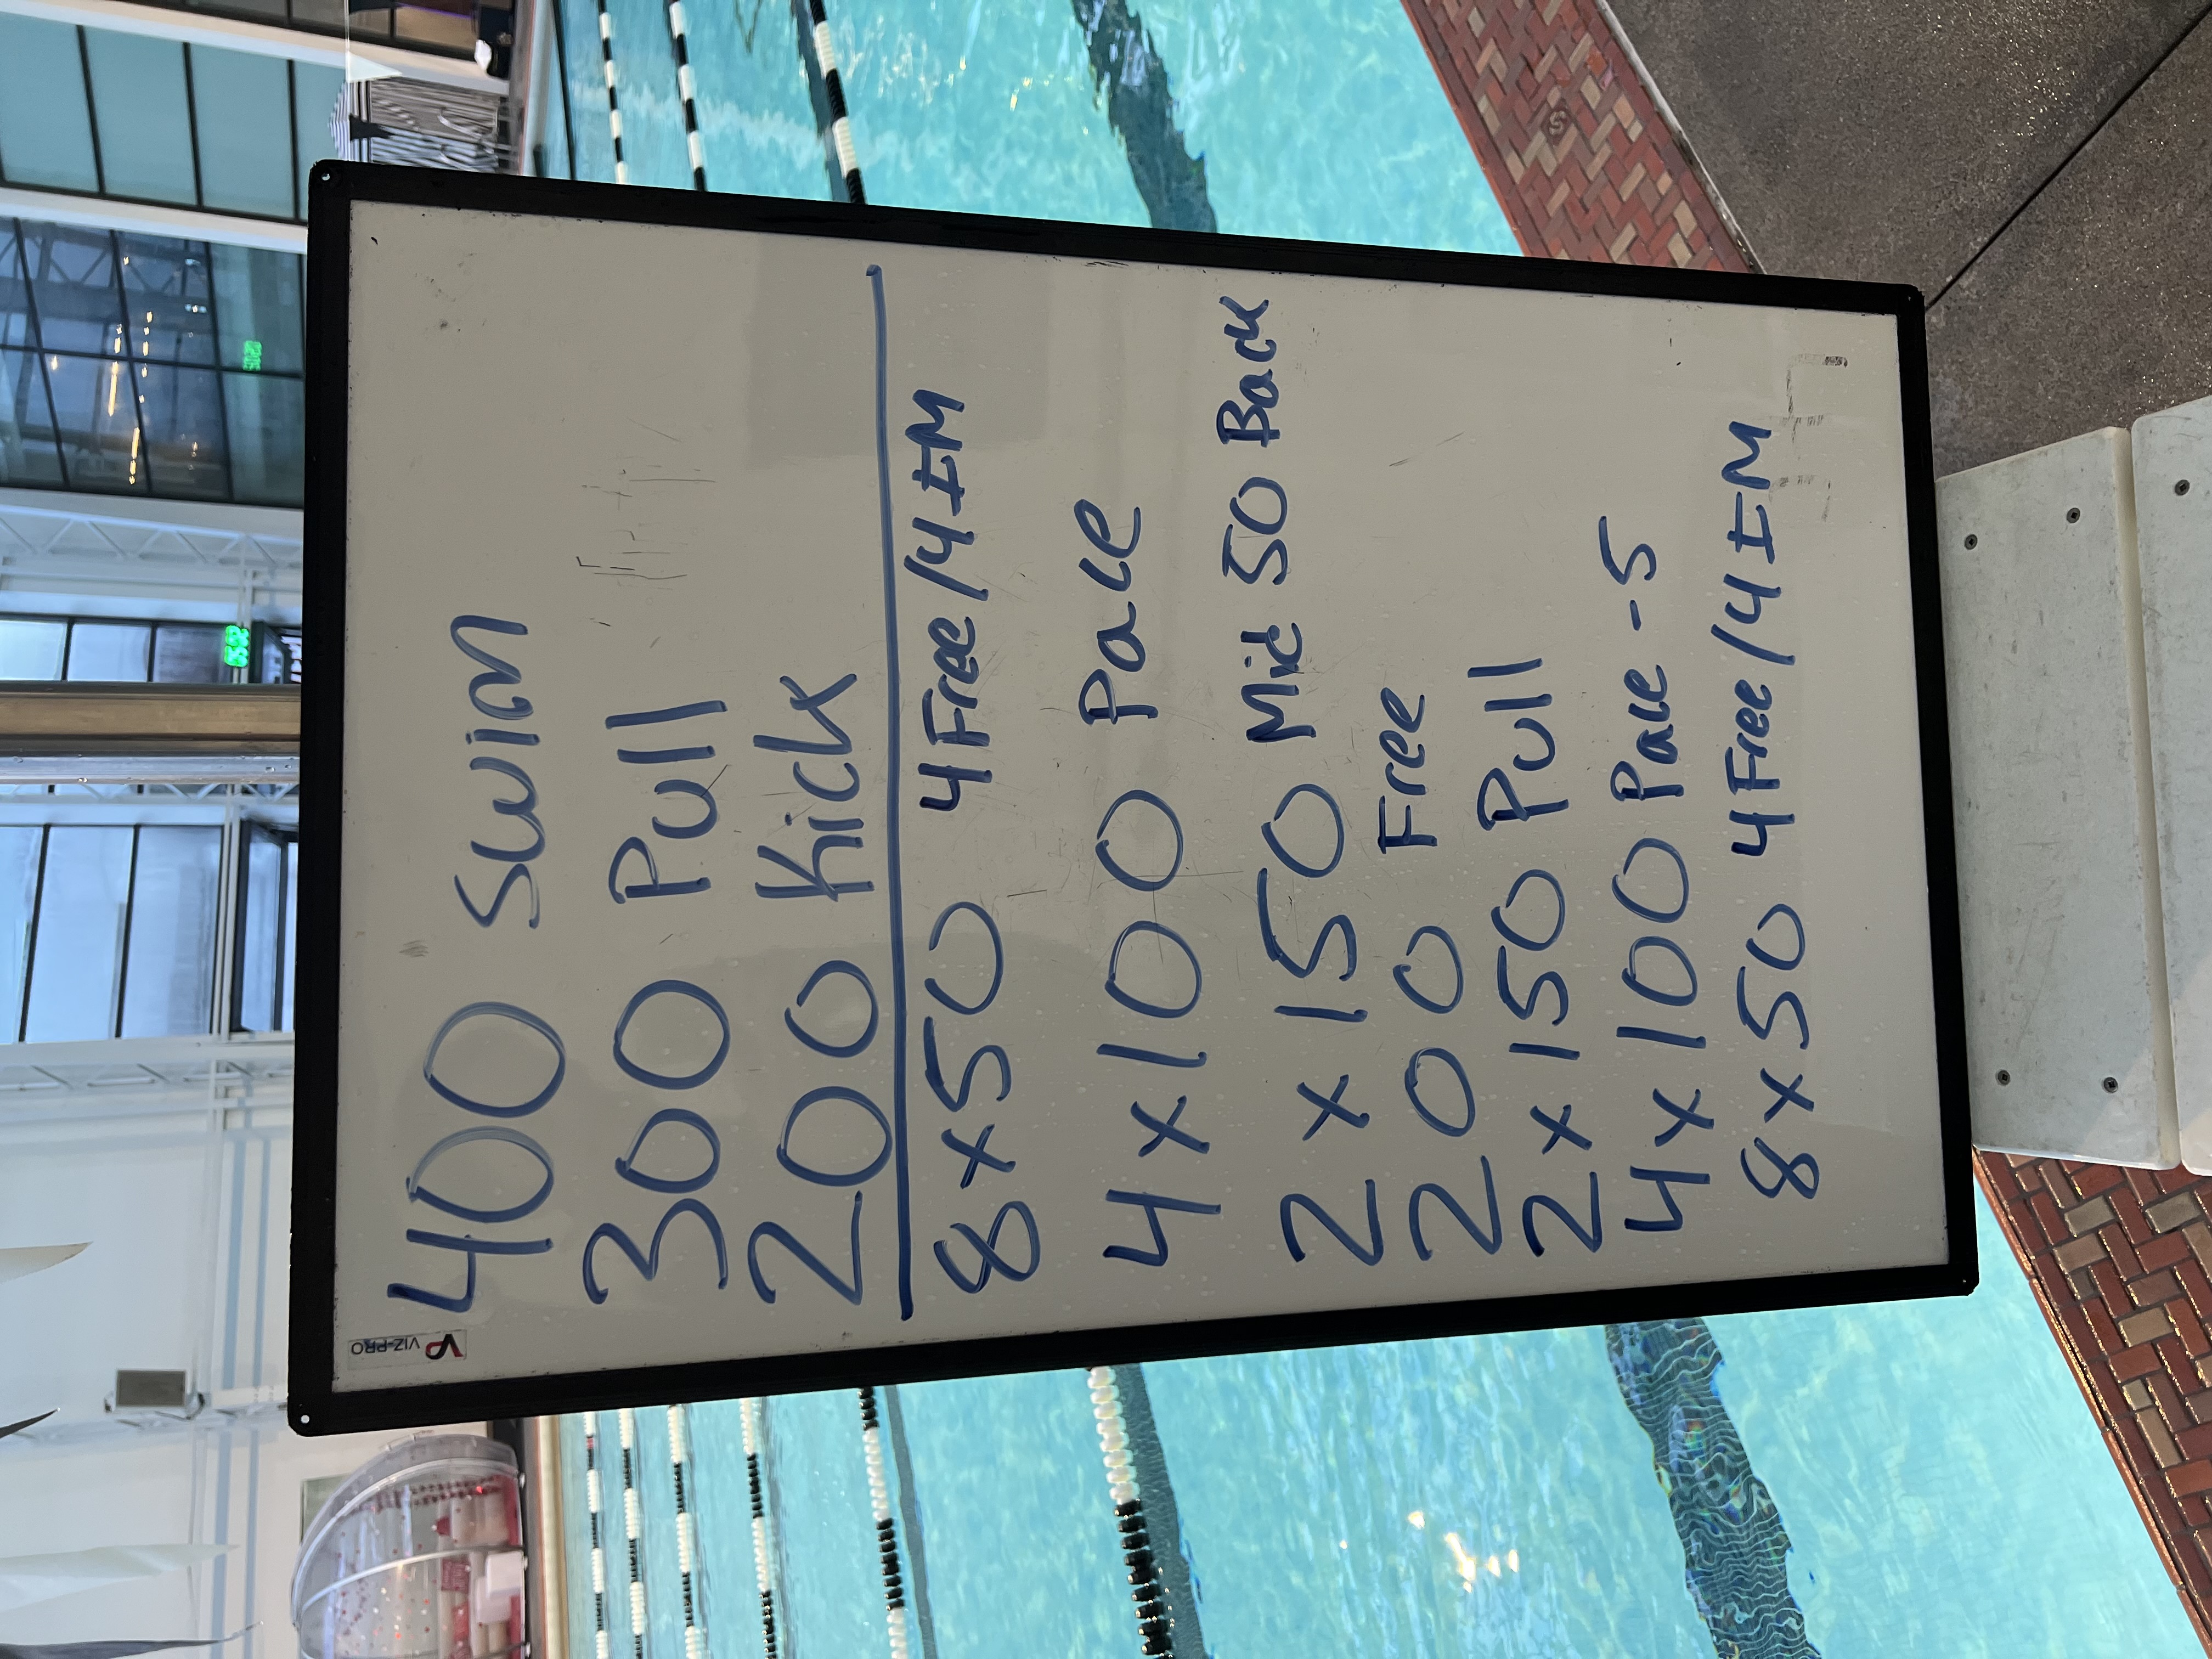 VIZ-PRO
400 Swim
300 Pull
200 Kick
8x50 4Free/4IM
4x100 Pace
2x150 Mid 50 Back
200 Free
2x150 Pull
4x100 Pace-5
8x50 4Free/4IM